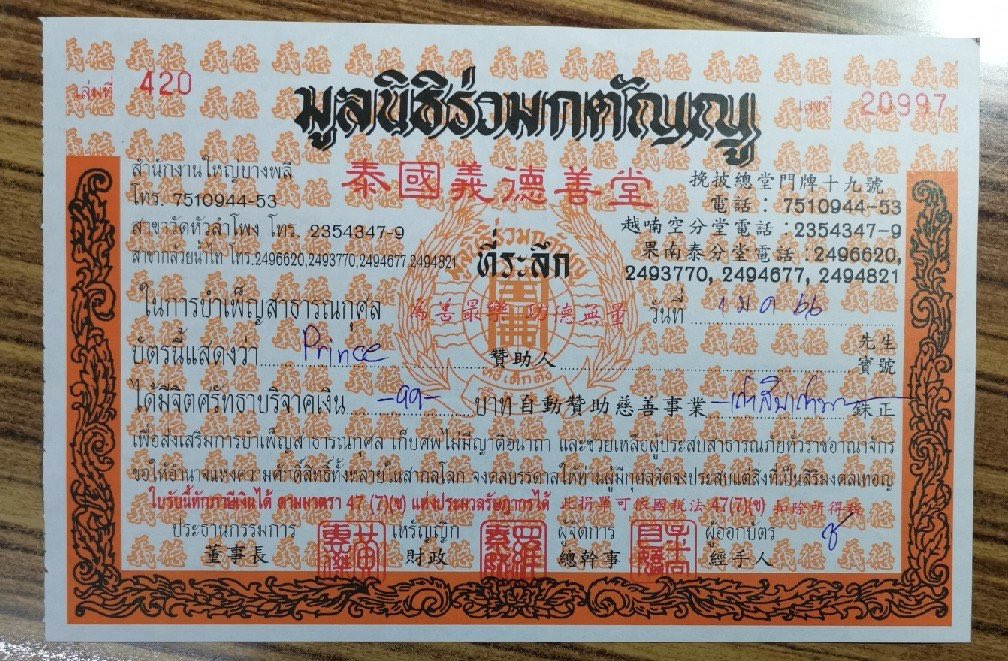 เล่มที่ 420
มูลนิธิร่วมกตัญญู
เลขที่ 20997
泰國義德善堂
สำนักงานใหญ่บางพลี
โทร. 7510944-53
สาขาวัดหัวลำโพง โทร. 2354347-9
สาขากล้วยน้ำไท โทร.2496620,2493770,2494677,2494821
挽披總堂門牌十九號
電話：7510944-53
越喃空分堂電話：2354347-9
果南泰分堂電話：2496620,
2493770, 2494677, 2494821
ที่ระลึก
ในการบำเพ็ญสาธารณกุศล
為善最樂 功德無量
วันที่ 1 ม ค 66
บัตรนี้แสดงว่า Prince 贊助人 先生 寶號
ได้มีจิตศรัทธาบริจาคเงิน -99- บาท 自動贊助慈善事業 -เก้าสิบเก้าบาท- 銖正
เพื่อส่งเสริมการบำเพ็ญสาธารณกุศล เก็บศพไม่มีญาติอนาถา และช่วยเหลือผู้ประสบสาธารณภัยทั่วราชอาณาจักร
ขอให้อำนาจแห่งความศักดิ์สิทธิ์ทั้งหลายในสากลโลก จงดลบรรดาลให้ท่านผู้มีกุศลจิตจงประสบแต่สิ่งที่เป็นสิริมงคลเทอญ
ใบรับนี้หักภาษีเงินได้ ตามมาตรา 47 (7)(ข) แห่งประมวลรัษฎากรได้ 此捐單可依國稅法 47(7)(ข) 扣除所得稅
ประธานกรรมการ เหรัญญิก ผู้จัดการ ผู้ออกบัตร
董事長 財政 總幹事 經手人